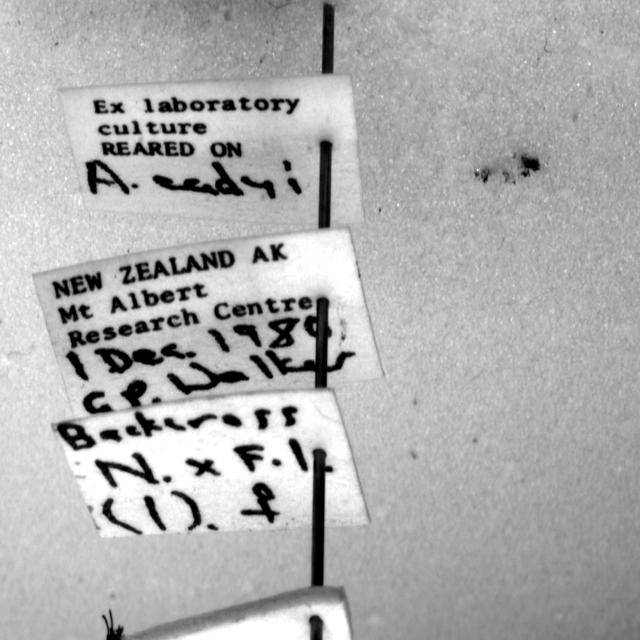 Ex laboratory
culture
REARED ON
A. eadyi
NEW ZEALAND AK
Mt Albert
Research Centre
1 Dec. 1980
Backcross
N. x F.1
(1). ♀